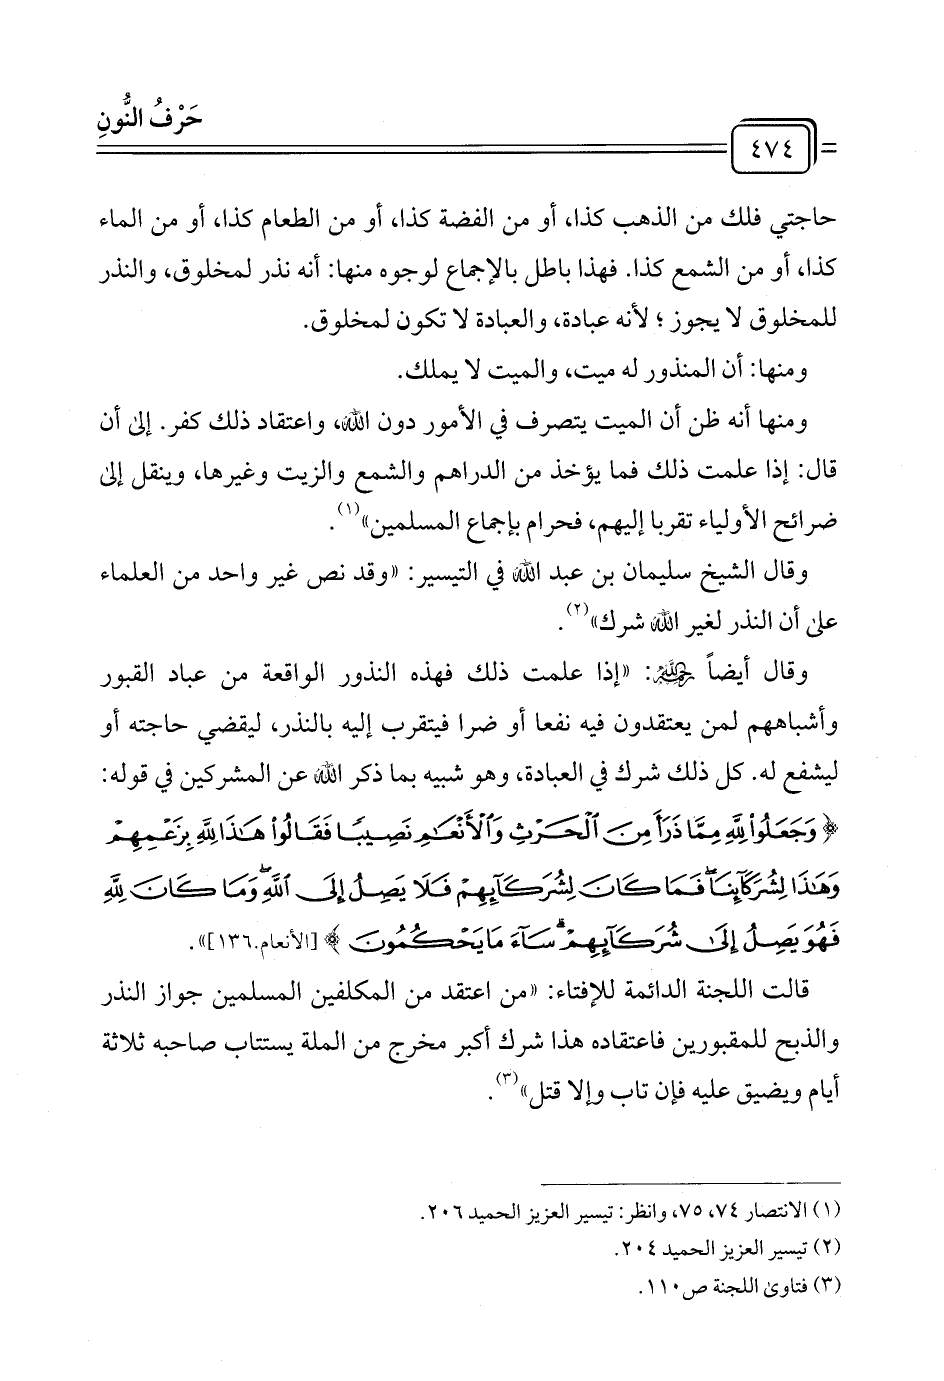 حَرْفُ النُّونِ
٤٧٤
حاجتي فلك من الذهب كذا، أو من الفضة كذا، أو من الطعام كذا، أو من الماء
كذا، أو من الشمع كذا. فهذا باطل بالإجماع لوجوه منها: أنه نذر لمخلوق، والنذر
للمخلوق لا يجوز ؛ لأنه عبادة، والعبادة لا تكون لمخلوق.
ومنها: أن المنذور له ميت، والميت لا يملك.
ومنها أنه ظن أن الميت يتصرف في الأمور دون الله، واعتقاد ذلك كفر. إلى أن
قال: إذا علمت ذلك فما يؤخذ من الدراهم والشمع والزيت وغيرها، وينقل إلى
ضرائح الأولياء تقربا إليهم، فحرام بإجماع المسلمين»(١).
وقال الشيخ سليمان بن عبد الله في التيسير: «وقد نص غير واحد من العلماء
على أن النذر لغير الله شرك»(٢).
وقال أيضاً رحمه الله: «إذا علمت ذلك فهذه النذور الواقعة من عباد القبور
وأشباههم لمن يعتقدون فيه نفعا أو ضرا فيتقرب إليه بالنذر، ليقضي حاجته أو
ليشفع له. كل ذلك شرك في العبادة، وهو شبيه بما ذكر الله عن المشركين في قوله:
﴿ وَجَعَلُوا۟ لِلَّهِ مِمَّا ذَرَأَ مِنَ ٱلْحَرْثِ وَٱلْأَنْعَٰمِ نَصِيبًا فَقَالُوا۟ هَٰذَا لِلَّهِ بِزَعْمِهِمْ
وَهَٰذَا لِشُرَكَآئِنَا ۖ فَمَا كَانَ لِشُرَكَآئِهِمْ فَلَا يَصِلُ إِلَى ٱللَّهِ ۖ وَمَا كَانَ لِلَّهِ
فَهُوَ يَصِلُ إِلَىٰ شُرَكَآئِهِمْ ۗ سَآءَ مَا يَحْكُمُونَ ﴾ [الأنعام.١٣٦]».
قالت اللجنة الدائمة للإفتاء: «من اعتقد من المكلفين المسلمين جواز النذر
والذبح للمقبورين فاعتقاده هذا شرك أكبر مخرج من الملة يستتاب صاحبه ثلاثة
أيام ويضيق عليه فإن تاب وإلا قتل»(٣).
(١) الانتصار ٧٤، ٧٥، وانظر: تيسير العزيز الحميد ٢٠٦.
(٢) تيسير العزيز الحميد ٢٠٤.
(٣) فتاوى اللجنة ص١١٠.